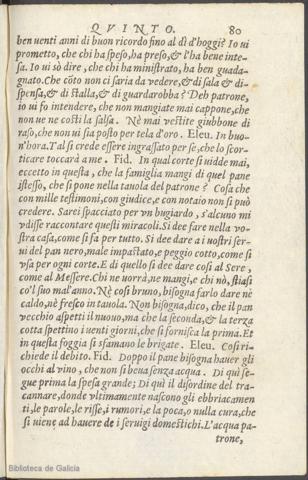 QVINTO. 80
ben uenti anni di buon ricordo fino al dì d'hoggi? Io ui
prometto, che chi ha speso, ha preso, & l'ha bene inte-
sa. Io ui sò dire, che chi ha ministrato, ha ben guada-
gnato. Che cōto non ci saria da vedere, & di sala & di-
spensa, & di stalla, & di guardarobba? Deh patrone,
io ui fo intendere, che non mangiate mai cappone, che
non ue ne costi la salsa. Nè mai vestite giubbone di
raso, che non ui sia posto per tela d'oro. Eleu. In buo-
n'hora. Tal si crede essere ingrassato per se, che lo scor-
ticare toccarà a me. Fid. In qual corte si uidde mai,
eccetto in questa, che la famiglia mangi di quel pane
istesso, che si pone nella tauola del patrone? Cosa che
con mille testimoni, con giudice, e con notaio non si può
credere. Sarei spacciato per vn bugiardo, s'alcuno mi
vdisse raccontare questi miracoli. Si dee fare nella vo-
stra casa, come si fa per tutto. Si dee dare a i uostri ser-
ui del pan nero, male impastato, e peggio cotto, come si
vsa per ogni corte. E di quello si dee dare così al Sere,
come al Messere. Chi ne uorrà, ne mangi, e chi nò, stiasi
co'l suo mal'anno. Nè così bruno, bisogna farlo dare nè
caldo, nè fresco in tauola. Non bisogna, dico, che il pan
vecchio aspetti il nuouo, ma che la seconda, & la terza
cotta spettino i uenti giorni, che si fornisca la prima. Et
in questa foggia si sfamano le brigate. Eleu. Così ri-
chiede il debito. Fid. Doppo il pane bisogna hauer gli
occhi al vino, che non si beua senza acqua. Di quì se-
gue prima la spesa grande; Di quì il disordine del tra-
cannare, donde vltimamente nascono gli ebbriacamen-
ti, le parole, le risse, i rumori, e la poca, o nulla cura, che
si uiene ad hauere de i seruigi domestichi. L'acqua pa-
trone,
Biblioteca de Galicia